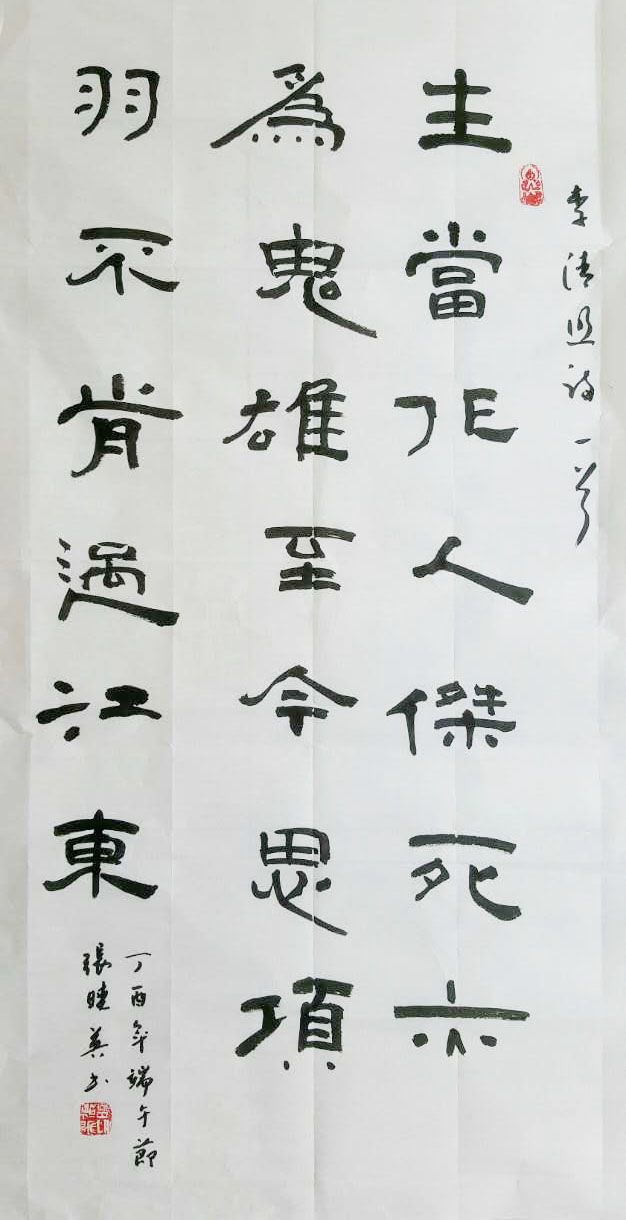 李清照詩一首
生當作人傑死亦
為鬼雄至今思項
羽不肯過江東
丁酉年端午節
張曉英书